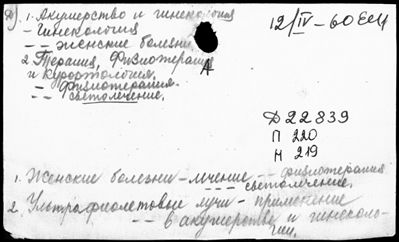 1. Акушерство и гинекология
- Гинекология
-- женские болезни
2. Терапия, Физиотерапия
и Курортология.
- физиотерапия.
-- светолечение.
12/IV-60
Д22839
П 220
Н 219
1. Женские болезни - лечение -- физиотерапия
светолечение.
2. Ультрафиолетовые лучи - применение
-- в акушерстве и гинеколо-
гии.